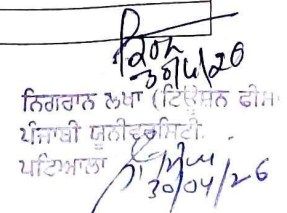 30/4/26
ਨਿਗਰਾਨ ਲੇਖਾ (ਟਿਊਸ਼ਨ ਫੀਸ
ਪੰਜਾਬੀ ਯੂਨੀਵਰਸਿਟੀ.
ਪਟਿਆਲਾ
30/04/26